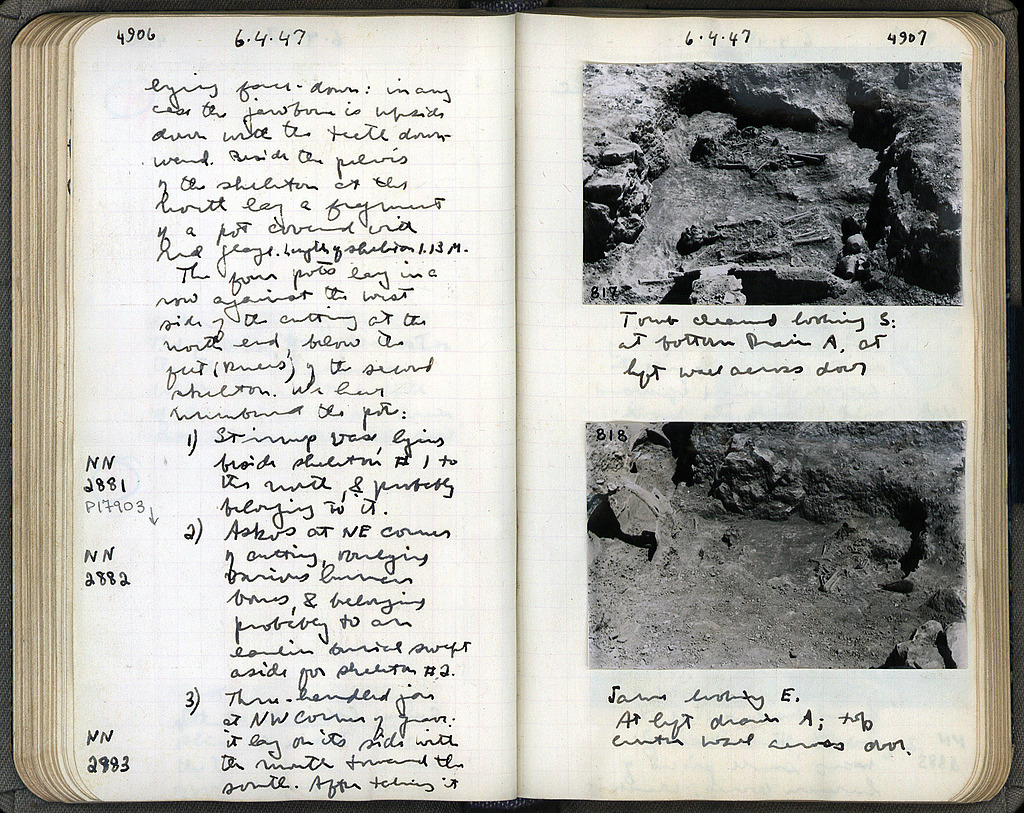 4906
6.4.47
lying face-down: in any
case the jawbone is upside
down with the teeth down-
ward. Beside the pelvis
of the skeleton at the
north lay a fragment
of a pot covered with
red glaze. Length of skeleton 1.13 M.
The four pots lay in a
row against the west
side of the cutting at the
north end, below the
feet (knees) of the second
skeleton. We have
numbered the pots:
1) Stirrup vase, lying
beside skeleton #1 to
the north, & probably
belonging to it.
NN
2881
P17903 ↓
2) Askos at NE corner
of cutting, overlying
various human
bones, & belonging
probably to an
earlier burial swept
aside for skeleton #2.
NN
2882
3) Three-handled jar
at NW corner of grave:
it lay on its side with
the mouth toward the
south. After taking it
NN
2883
6.4.47
4907
817
Tomb cleaned looking S:
at bottom Drain A, at
left wall across door
818
Same looking E.
At left drain A; top
center wall across door.